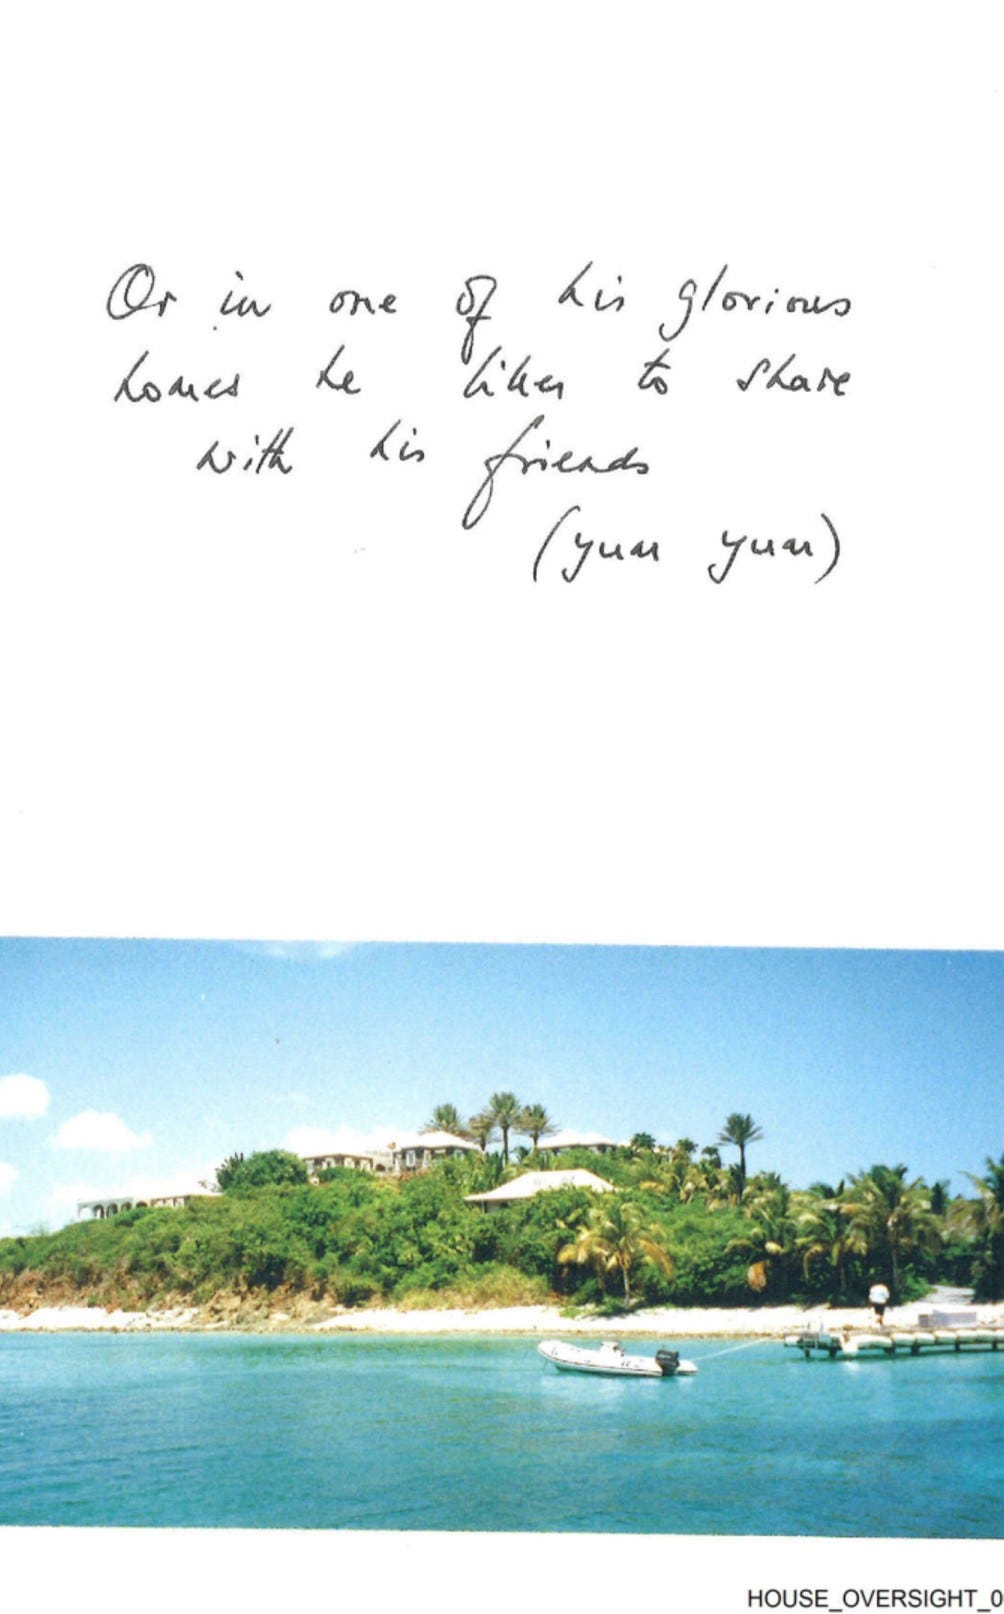 Or in one of his glorious
homes he likes to share
with his friends
(yum yum)
HOUSE_OVERSIGHT_0